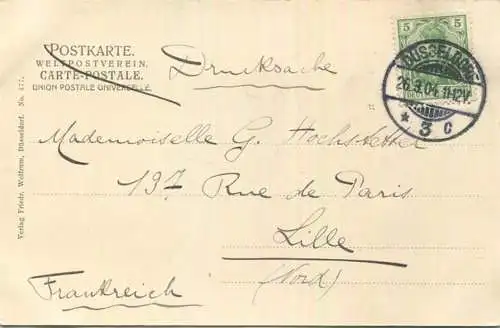 POSTKARTE.
WELTPOSTVEREIN.
CARTE-POSTALE.
UNION POSTALE UNIVERSELLE.
Drucksache
5 5
DÜSSELDORF
26.9.04. 11-12V.
* 3 c
Mademoiselle G. Hochstetter
197 Rue de Paris
Lille
(Nord)
Frankreich
Verlag Friedr. Wolfrum, Düsseldorf. No. 477.